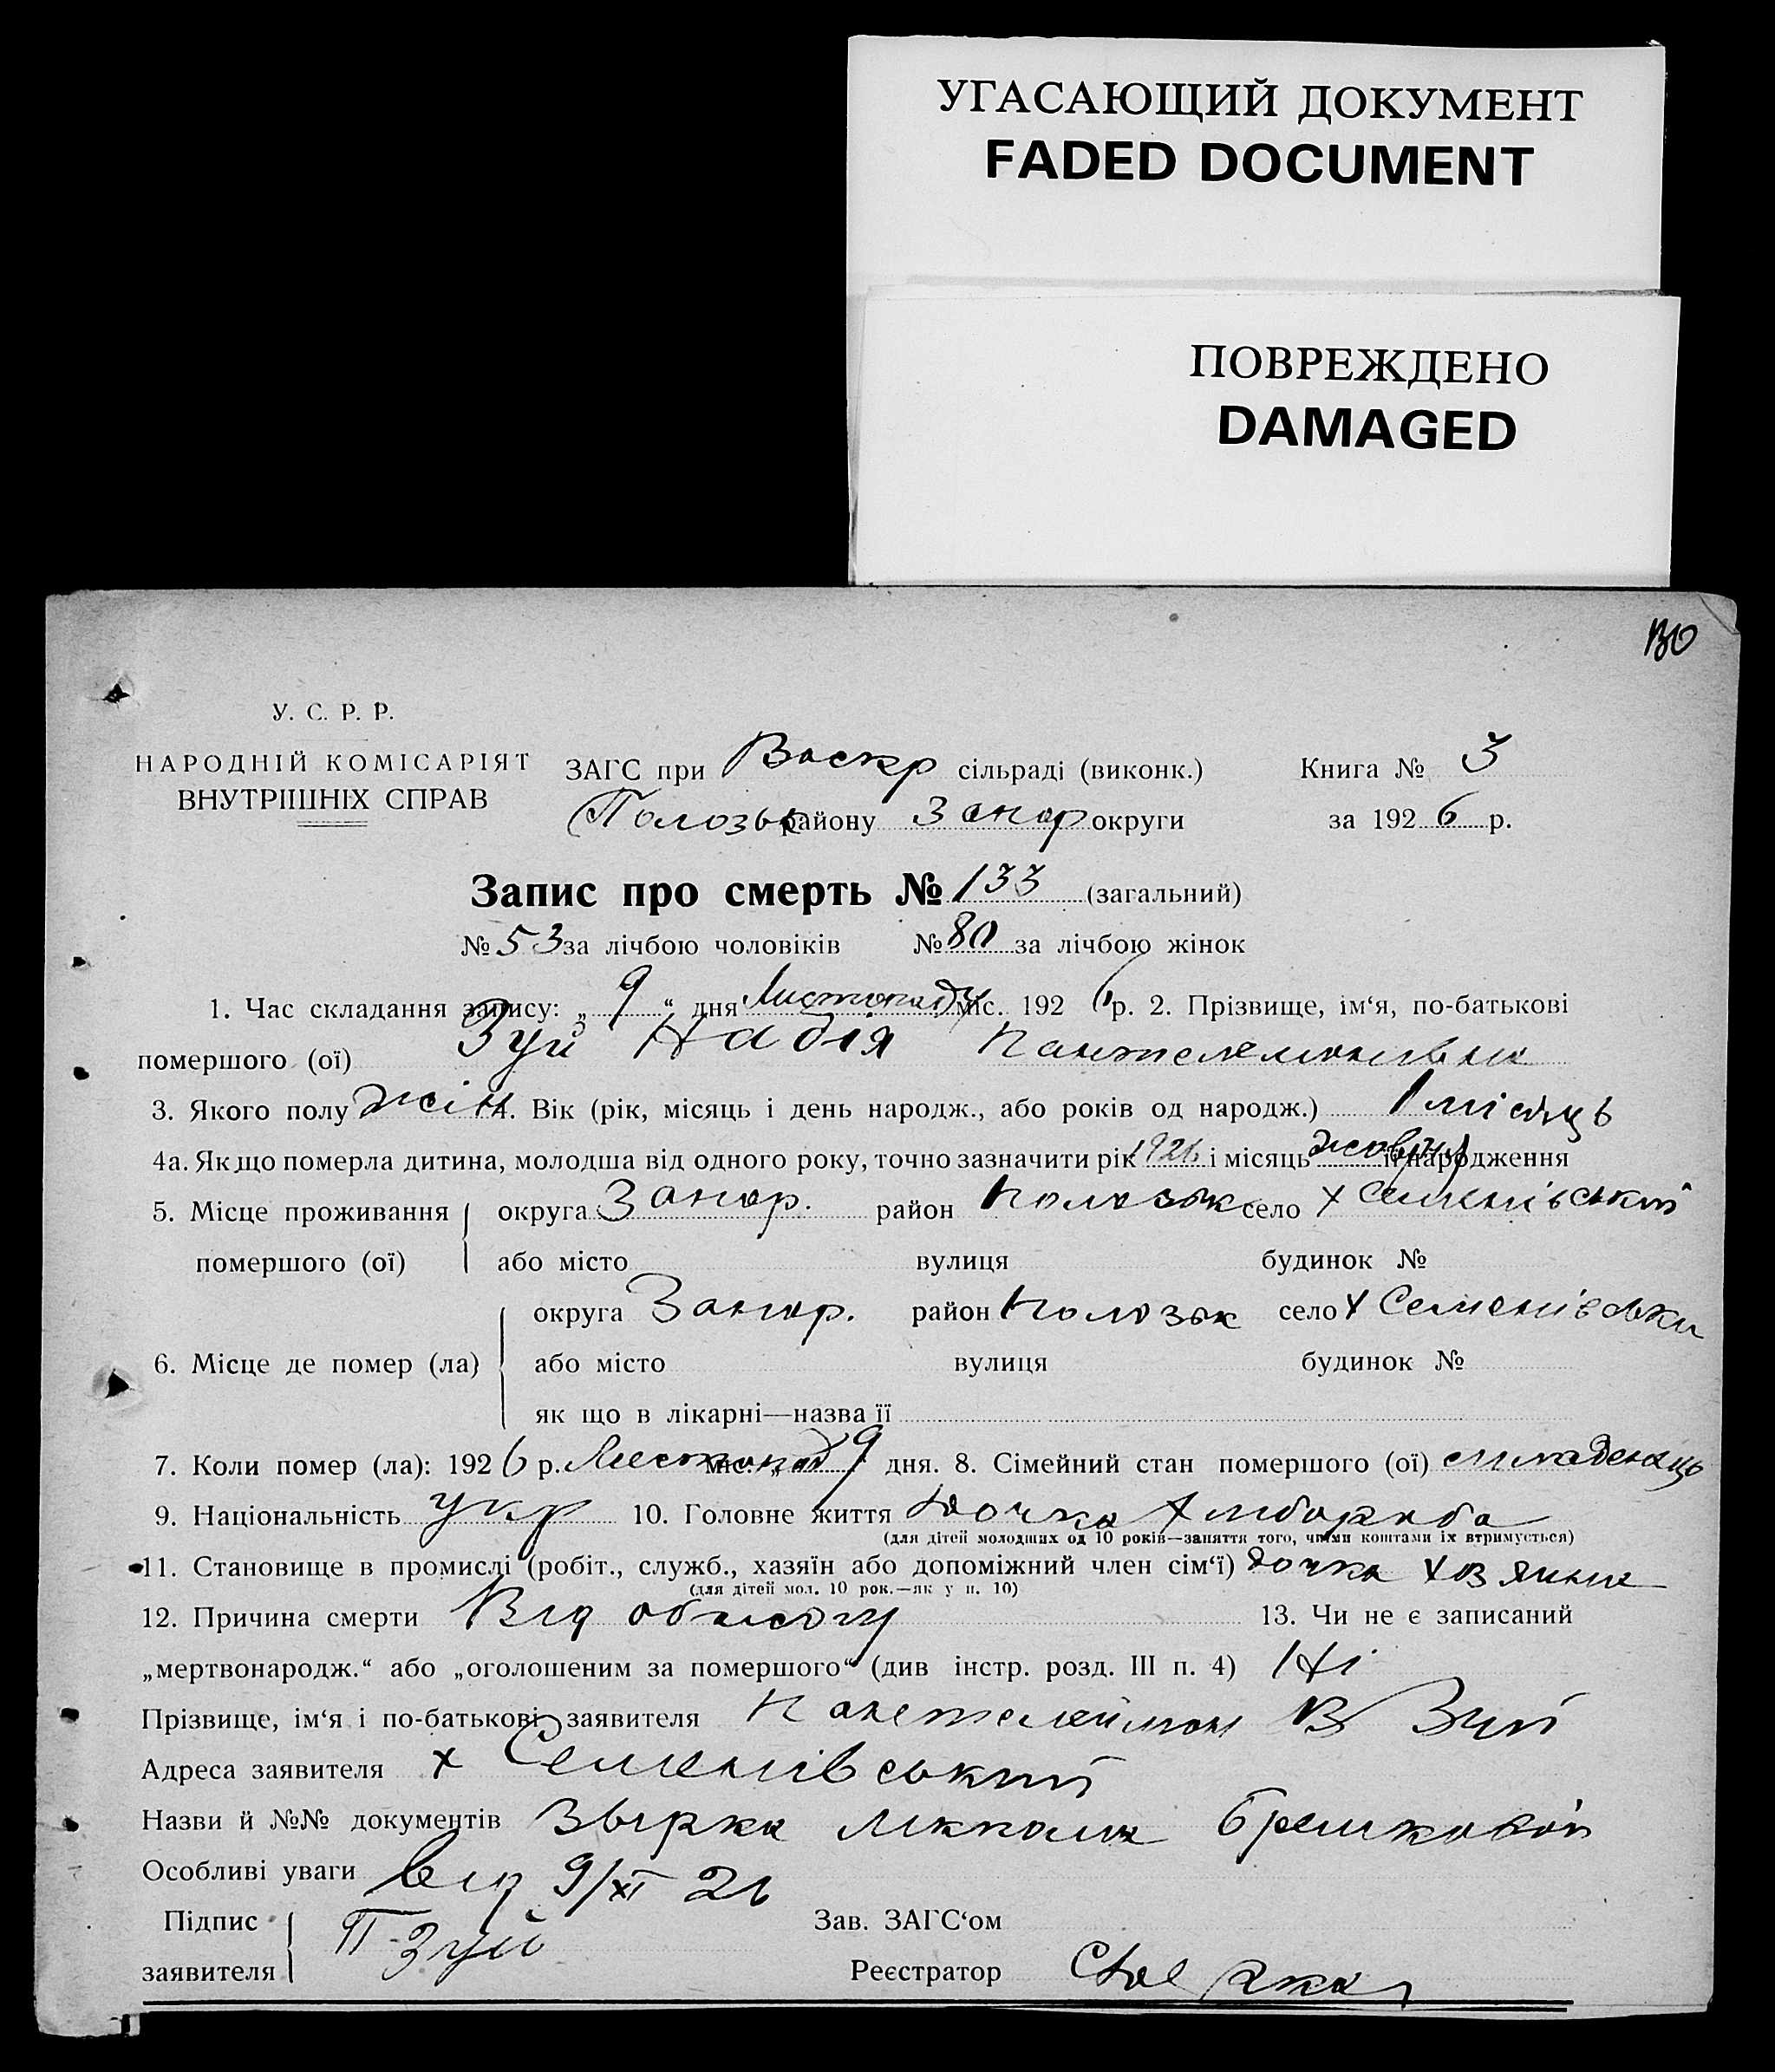 УГАСАЮЩИЙ ДОКУМЕНТ
FADED DOCUMENT
ПОВРЕЖДЕНО
DAMAGED
130
У. С. Р. Р.
НАРОДНІЙ КОМІСАРІЯТ
ВНУТРІШНІХ СПРАВ
ЗАГС при Воскр сільраді (виконк.) Книга № 3
Полозьк району Запор округи за 1926 р.
Запис про смерть № 133 (загальний)
№ 53 за лічбою чоловіків № 80 за лічбою жінок
1. Час складання запису: „ 9 “ дня Листопаду міс. 1926 р. 2. Прізвище, ім‘я, по-батькові
помершого (ої) Зуй Надія Пантелемонівна
3. Якого полу жін 4. Вік (рік, місяць і день народж., або років од народж.) 1 місяць
4а. Якщо померла дитина, молодша від одного року, точно зазначити рік 1926 і місяць жовтня її народження
5. Місце проживання округа Запор. район Полозьк село х Семенівський
помершого (ої) або місто вулиця будинок №
округа Запор. район Полозьк село х Семенівськи
6. Місце де помер (ла) або місто вулиця будинок №
як що в лікарні—назва її
7. Коли помер (ла): 1926 р. Листопад міс. „ 9 дня. 8. Сімейний стан помершого (ої) младенець
9. Національність укр 10. Головне життя Дочка Хлібороба
(для дітей молодших од 10 років—заняття того, чиїми коштами їх втримується)
11. Становище в промислі (робіт., служб., хазяїн або допоміжний член сім‘ї) дочка
(для дітей мол. 10 рок.—як у п. 10)
12. Причина смерти Від 13. Чи не є записаний
„мертвонародж.“ або „оголошеним за помершого“ (див інстр. розд. III п. 4) Ні
Прізвище, ім‘я і по-батькові заявителя Пантелеймон В Зуй
Адреса заявителя х Семенівський
Назви й №№ документів
Особливі уваги від 9/XI 26
Підпис Зав. ЗАГС‘ом
заявителя П Зуй Реєстратор